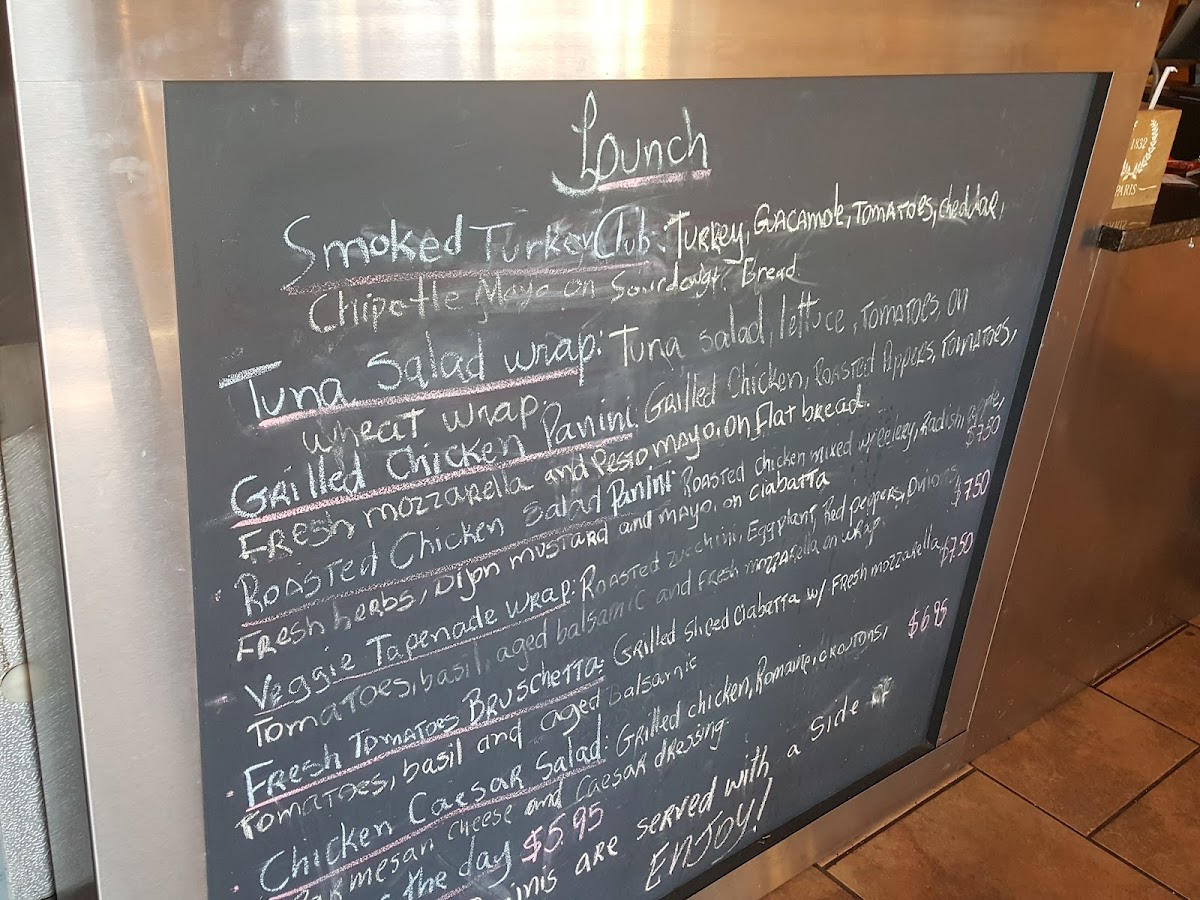 Lounch
Smoked Turkey Club: Turkey, Guacamole, Tomatoes, cheddar,
Chipotle Mayo on Sourdough Bread.
Tuna Salad wrap: Tuna salad, lettuce, Tomatoes, on
wheat wrap.
Grilled Chicken Panini Grilled Chicken, Roasted Peppers, Tomatoes,
Fresh mozzarella and Pesto mayo, on flat bread.
Roasted Chicken Salad Panini Roasted chicken mixed w/celery, Radish, apple,
$7.50
Fresh herbs, Dijon mustard and mayo, on Ciabatta
Veggie Tapenade wrap: Roasted zucchini, Eggplant, Red peppers, Onions
$7.50
Tomatoes, basil, aged balsamic and Fresh mozzarella on wrap.
Fresh Tomatoes Bruschetta: Grilled sliced Ciabatta w/ Fresh mozzarella
$7.50
Tomatoes, basil and aged balsamic
Chicken Caesar Salad: Grilled chicken, Romaine, croutons,
$6.95
Parmesan cheese and Caesar dressing.
the day $5.95
are served with a side of
ENJOY!
1832
PARIS